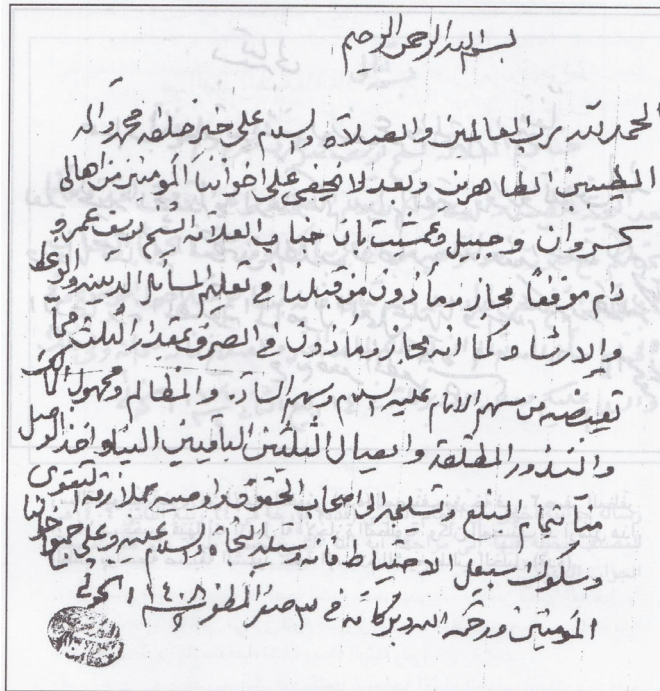 بسم الله الرحمن الرحيم
الحمد لله رب العالمين والصلاة والسلام على خير خلقه محمد وآله
الطيبين الطاهرين وبعد لا يخفى على اخواننا المؤمنين من اهالي
كسروان وجبيل بان جناب العلامة الشيخ يوسف عمرو
دام موفقاً مجاز ومأذون من قبلنا في تعليم المسائل الدينية والوعظ
والارشاد كما انه مجاز ومأذون في الصرف بمقدار الثلث مما
يقبضه من سهم الامام عليه السلام وسهم السادة والمظالم ومجهول المالك
والنذور المطلقة وايصال الثلثين الباقيين الينا واخذ الوصل
منا بتمام المبلغ وتسليمه الى اصحاب الحقوق واوصيه بملازمة التقوى
وسلوك سبيل الاحتياط فانه سبيل النجاة والسلام عليه وعلى جميع اخواننا
المؤمنين ورحمة الله وبركاته في ٣ صفر المظفر ١٤٠٨ الخوئي